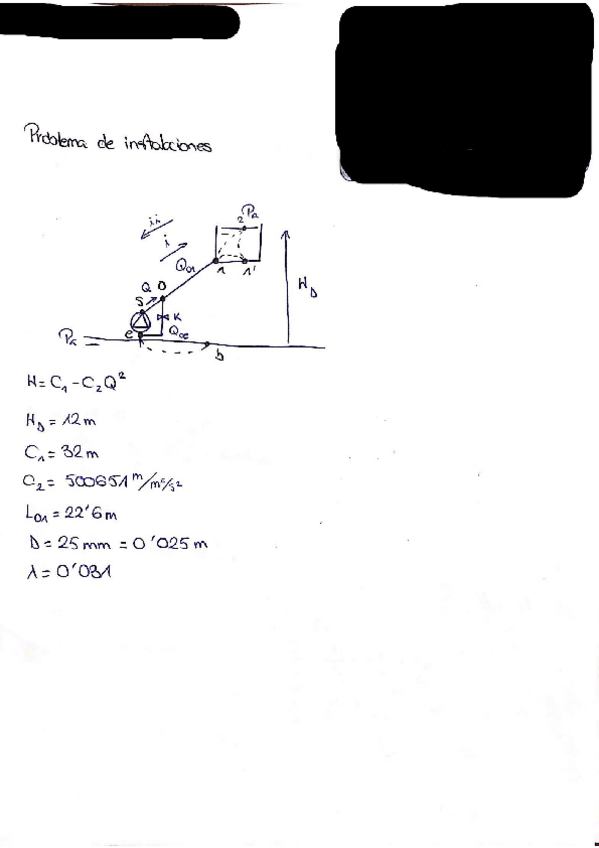 Problema de instalaciones
ii
i
2
Pa
Q01
1
1'
HD
Q
0
S
K
e
Q0e
Pa
b
H = C1 - C2Q²
HD = 12 m
C1 = 32 m
C2 = 500651 m/m⁶/s²
L01 = 22'6 m
D = 25 mm = 0'025 m
λ = 0'031